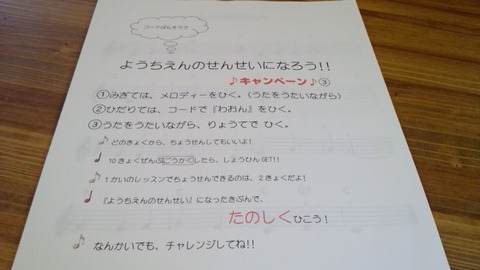 ようちえんのせんせいになろう!!
♪キャンペーン♪③
①みぎては、メロディーをひく。(うたをうたいながら)
②ひだりては、コードで『わおん』をひく。
③うたをうたいながら、りょうてで ひく。
♪ どのきょくから、ちょうせんしてもいいよ!
♩ 10きょくぜんぶごうかくしたら、しょうひんGET!!
♪ 1かいのレッスンでちょうせんできるのは、2きょくだよ!
♩ 『ようちえんのせんせい』になったきぶんで、
たのしくひこう!
♫ なんかいでも、チャレンジしてね!!